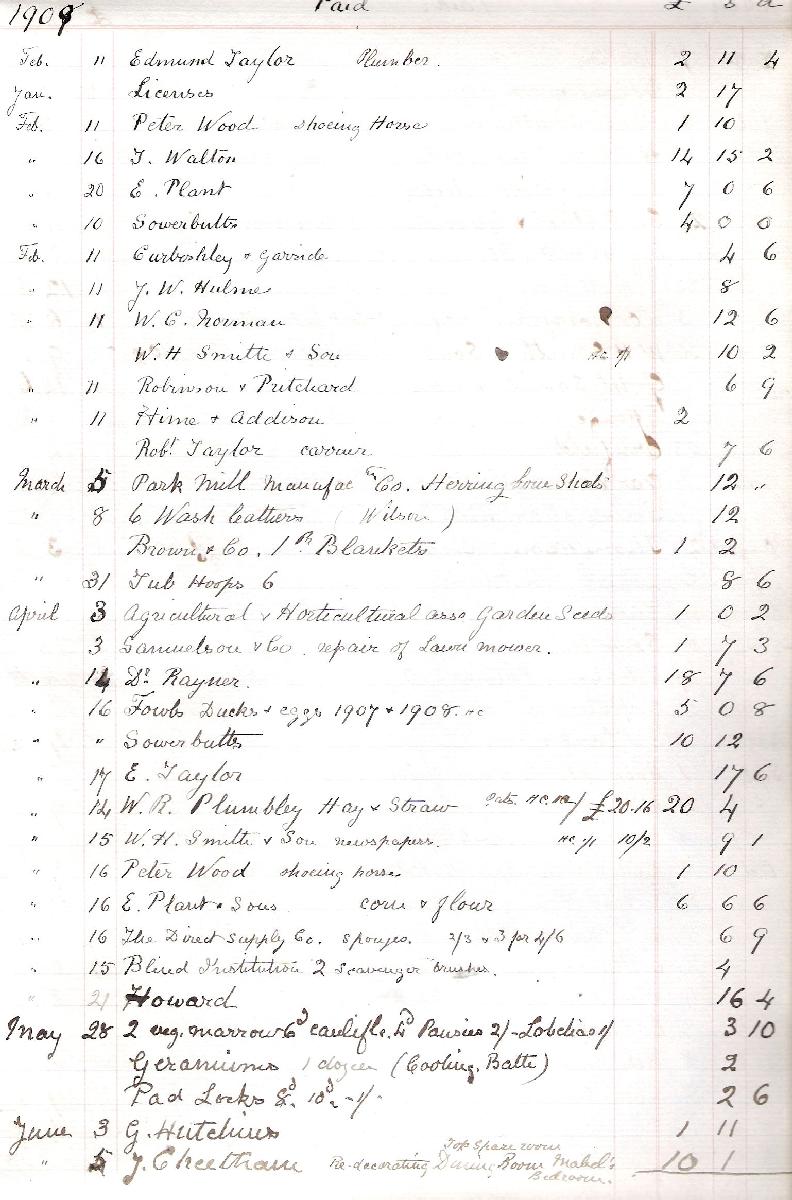 1909 Paid £ s d
Feb. 11 Edmund Taylor Plumber. 2 11 4
Jan. Licenses 2 17
Feb. 11 Peter Wood shoeing Horse 1 10
" 16 T. Walton 14 15 2
" 20 E. Plant 7 0 6
" 10 Sowerbutts 4 0 0
Feb. 11 Curbishley & Garside 4 6
" 11 J. W. Hulme 8
" 11 W. C. Norman 12 6
W. H Smith & Son 10 2
" 11 Robinson & Pritchard 6 9
" 11 Hime & Addison 2
Robt Taylor carrier 7 6
March 5 Park Mill Manufac Co. Herring bone Shads 12 "
" 8 6 Wash leathers (Wilson) 12
Brown & Co. 1 pr Blankets 1 2
" 31 Tub Hoops 6 8 6
April 3 Agricultural & Horticultural asso Garden Seeds 1 0 2
3 Samuelson & Co. repair of Lawn mower. 1 7 3
" 14 Dr. Rayner. 18 7 6
" 16 Fowls Ducks & eggs 1907 & 1908. 5 0 8
" " Sowerbutts 10 12
" 17 E. Taylor 17 6
" 14 W. R. Plumbley Hay & Straw £20-16 20 4
" 15 W. H. Smith & Son newspapers. 10/2 9 1
" 16 Peter Wood shoeing horse 1 10
" 16 E. Plant & Sons corn & flour 6 6 6
" 16 The Direct Supply Co. Sponges. 2/3 & 3 for 4/6 6 9
" 15 Blind Institution 2 Scavenger brushes. 4
" 21 Howard 16 4
May 28 2 veg. marrow 6d caulifle. 4d Pansies 2/- Lobelias 1/ 3 10
Geraniums 1 dozen (Cooling, Batte) 2
Pad Locks 8d. 10d. -1/- 2 6
June 3 G. Hutchins 1 11
Top Spare room
" 5 J. Cheetham Re-decorating Dining Room Mabel's 10 1
Bedroom.